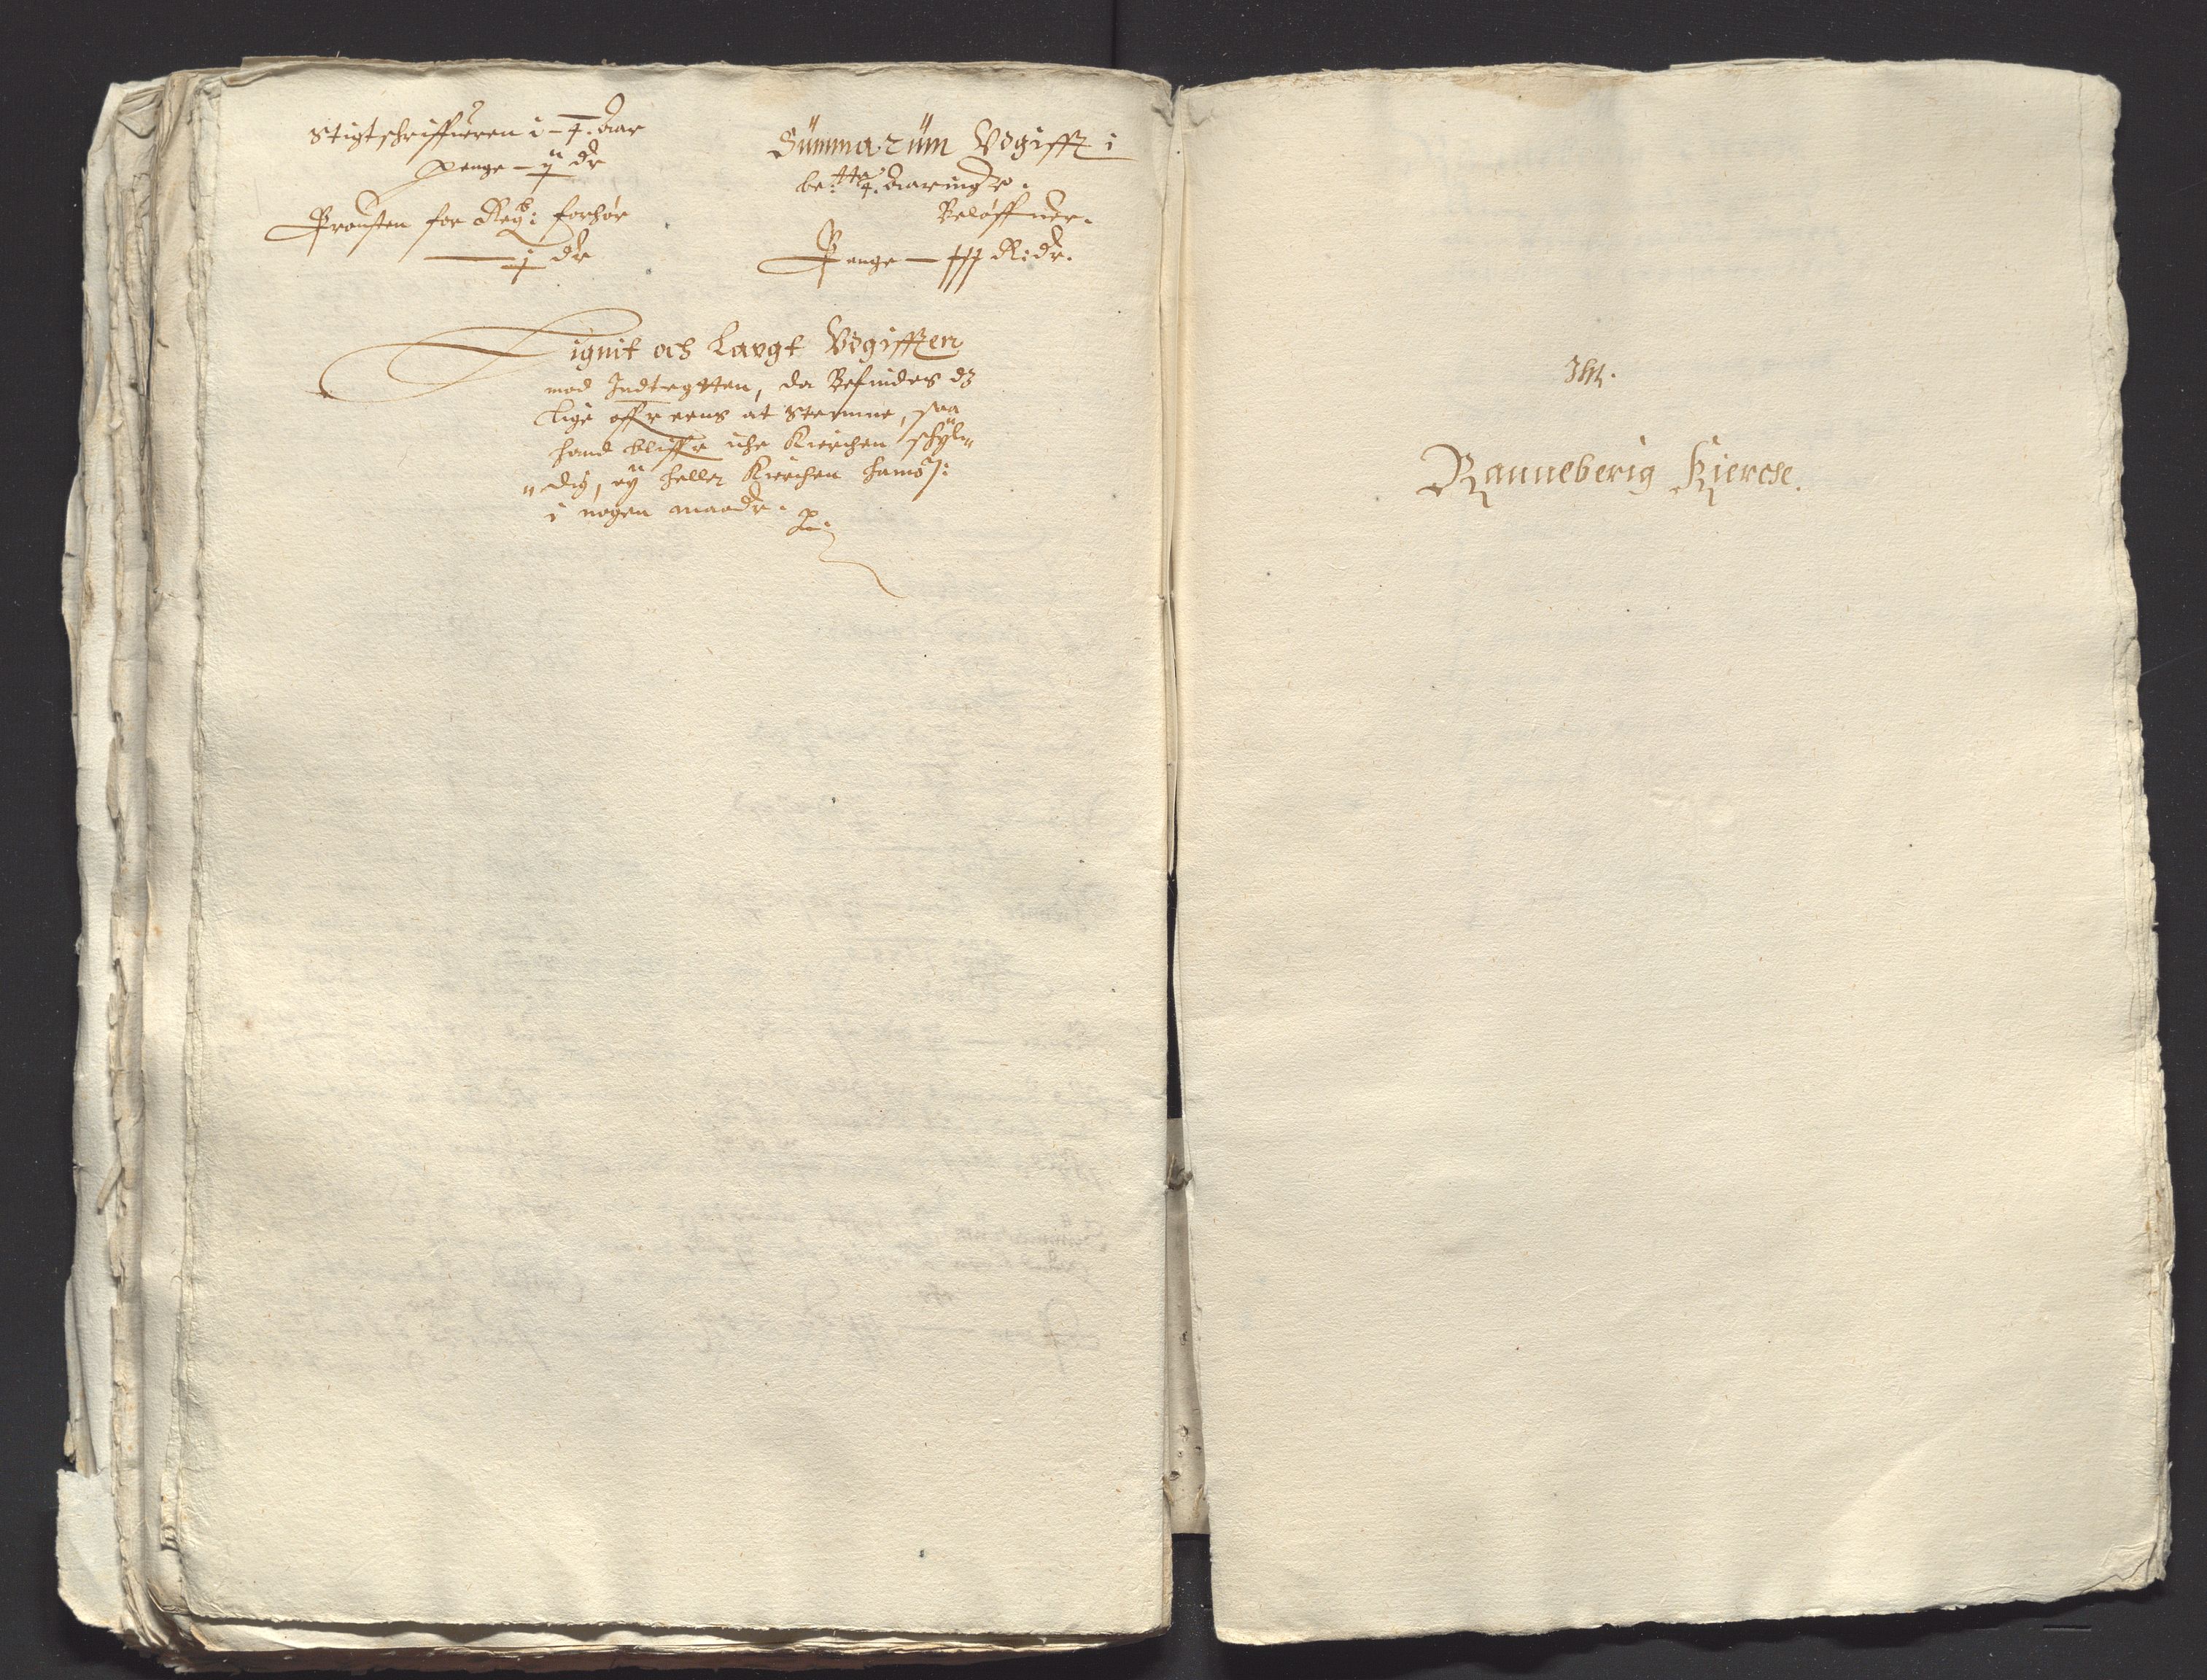 Stigtschriffueren i 4. Aar
penge — ij dr
Prousten for Regb: forhør
— j dr
Summarum Vdgifft i
be:tte 4. Aaringer.
Beløffuer.
Penge — R: dr.
Lignit och Lavgt Vdgifften
mod Indtegtten, da Befindes dz
lige offuer eens at Stemme, saa
hand bliffr iche Kirchen schyl„
„dig, ey heller Kirchen hannom:
i nogen maade.
Ranneberig Kierche.